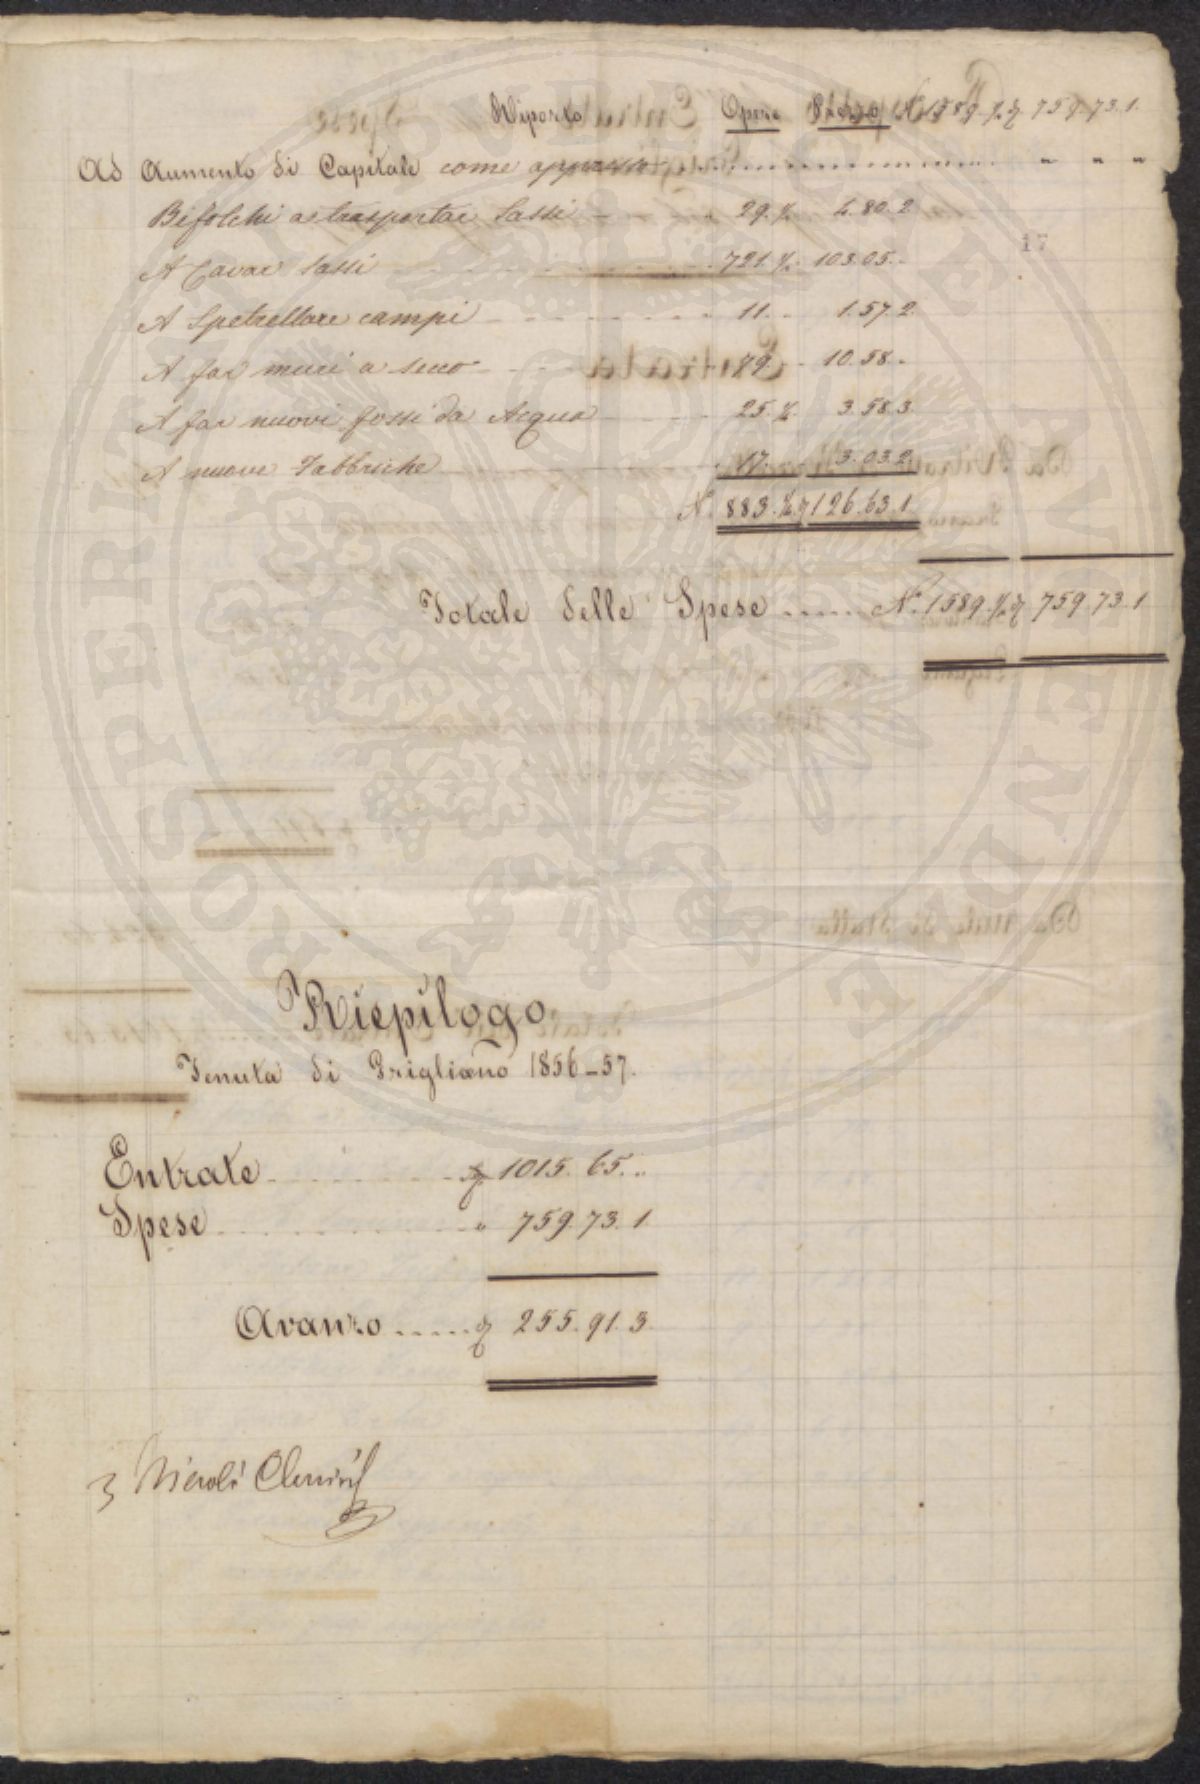 Riporto Opere Prezzo N. 1589.½ 759.73.1.
Ad Aumento di Capitale come appresso
Bifolchi a trasportar Sassi 29.½ 4.80.2
A Cavar Sassi 721.½. 103.05.
A Spetrellare campi 11. 1.57.2
17
A far muri a secco 10.58.
A far nuovi fossi da Acqua 25.½. 3.58.3
A nuove Fabbriche 17. 3.03.2
N. 883.½ 126.63.1
Totale delle Spese N. 1589.½ 759.73.1
Riepilogo
Tenuta di Prigliano 1856-57.
Entrate 1015.65.
Spese " 759.73.1
Avanzo 255.91.3.
Nicolò
PROSPERITATI PUBLICAE AUGENDAE